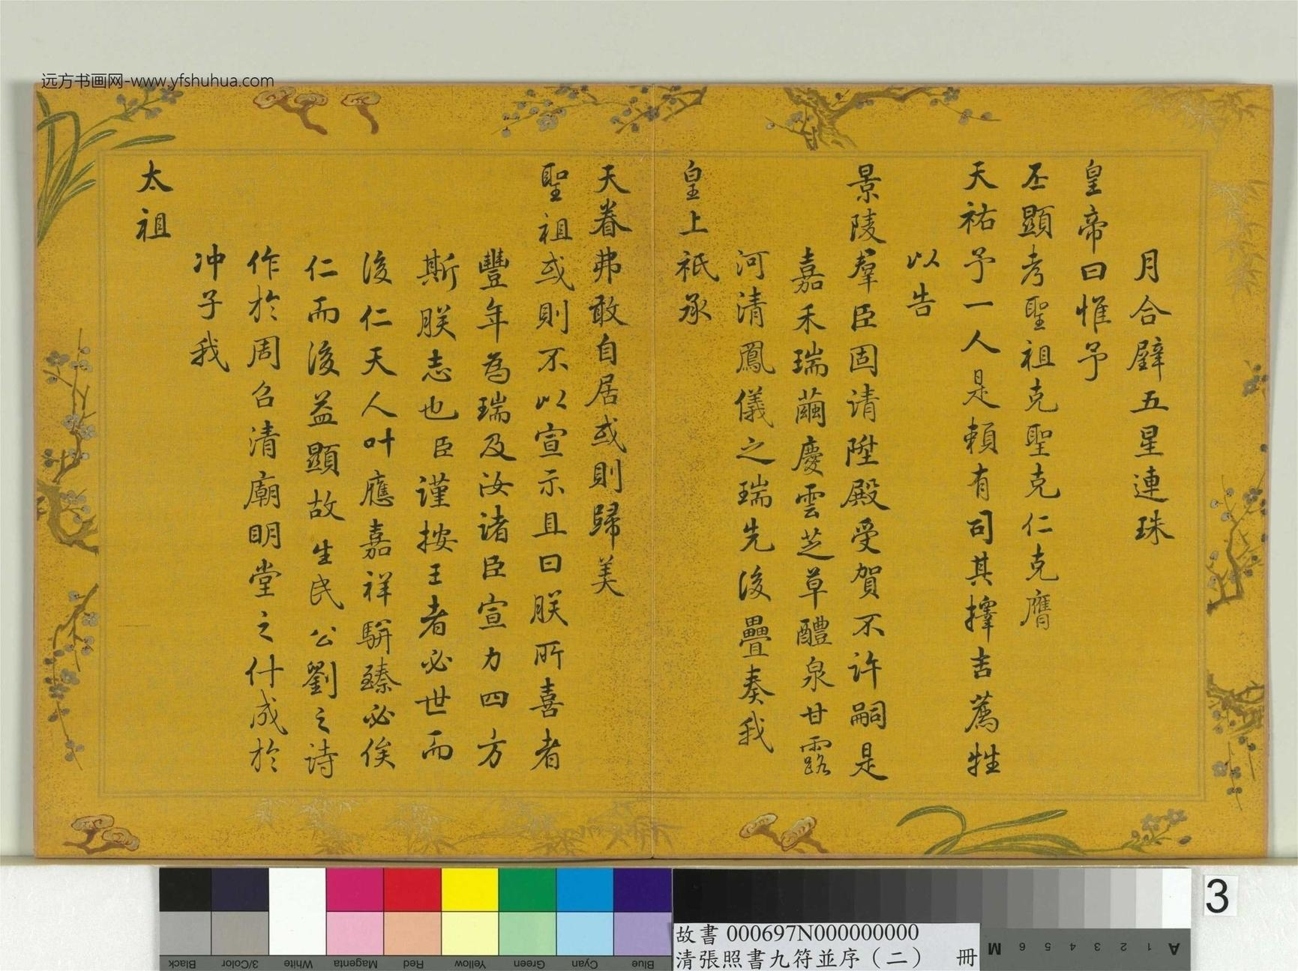 远方书画网-www.yfshuhua.com
月合璧五星連珠
皇帝曰惟予
丕顯考聖祖克聖克仁克膺
天祐予一人是賴有司其擇吉薦牲
以告
景陵羣臣固请陞殿受賀不许嗣是
嘉禾瑞繭慶雲芝草醴泉甘露
河清鳳儀之瑞先後疊奏我
皇上祇承
天眷弗敢自居或則歸美
聖祖或則不以宣示且曰朕所喜者
豐年為瑞及汝诸臣宣力四方
斯朕志也臣谨按王者必世而
後仁天人叶應嘉祥駢臻必俟
仁而後益顯故生民公劉之诗
作於周召清廟明堂之什成於
冲子我
太祖
3
故書 000697N000000000
清張照書九符並序（二） 冊
Black
3/Color
White
Magenta
Red
Yellow
Green
Cyan
Blue
A 1 2 3 4 5 6 M